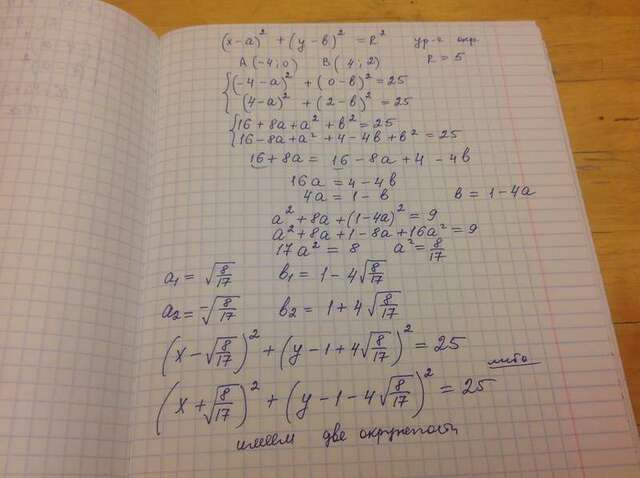 (x-a)² + (y-в)² = R² ур-е окр.
A(-4;0) B(4;2) R=5
{(-4-a)² + (0-в)² = 25
(4-a)² + (2-в)² = 25
{16+8a+a²+в² = 25
16-8a+a²+4-4в+в² = 25
16+8a = 16-8a+4-4в
16a = 4-4в
4a = 1-в в = 1-4a
a²+8a+(1-4a)² = 9
a²+8a+1-8a+16a² = 9
17a² = 8 a² = 8/17
a₁ = √(8/17) в₁ = 1-4√(8/17)
a₂ = -√(8/17) в₂ = 1+4√(8/17)
(x-√(8/17))² + (y-1+4√(8/17))² = 25
либо
(x+√(8/17))² + (y-1-4√(8/17))² = 25
имеем две окружности